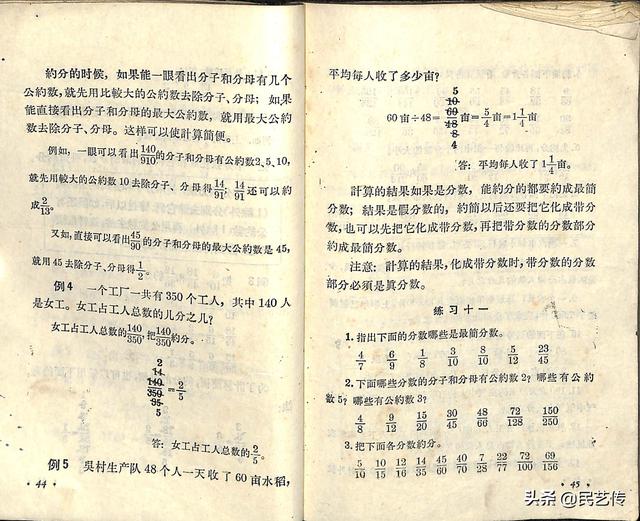 約分的时候，如果能一眼看出分子和分母有几个
公約数，就先用比較大的公約数去除分子、分母；如果
能直接看出分子和分母的最大公約数，就用最大公約
数去除分子、分母。这样可以使計算簡便。
例如，一眼可以看出140/910的分子和分母有公約数2、5、10，
就先用較大的公約数10去除分子、分母得14/91；14/91还可以約
成2/13。
又如，直接可以看出45/90的分子和分母的最大公約数是45，
就用45去除分子、分母得1/2。
例4 一个工厂一共有350个工人，其中140人
是女工。女工占工人总数的几分之几？
女工占工人总数的140/350把140/350約分。
2
14
140/350=2/5
35
5
答：女工占工人总数的2/5。
例5 吳村生产队48个人一天收了60亩水稻，
·44·
平均每人收了多少亩？
5
10
60亩÷48=60/48亩=5/4亩=1 1/4亩
8
4
答：平均每人收了1 1/4亩。
計算的結果如果是分数，能約分的都要約成最簡
分数；結果是假分数的，約簡以后还要把它化成带分
数，也可以先把它化成带分数，再把带分数的分数部分
約成最簡分数。
注意：計算的結果，化成带分数时，带分数的分数
部分必須是眞分数。
练习十一
1. 指出下面的分数哪些是最簡分数。
4/7 6/9 1/8 3/10 8/10 5/12 23/45
2. 下面哪些分数的分子和分母有公約数2？哪些有公約
数5？哪些有公約数3？
4/8 9/12 15/20 30/45 48/66 72/128 150/250
3. 把下面各分数約分。
5/10 10/15 12/16 14/35 45/60 40/70 7/28 22/77 72/100 69/156
·45·
头条 @民艺传